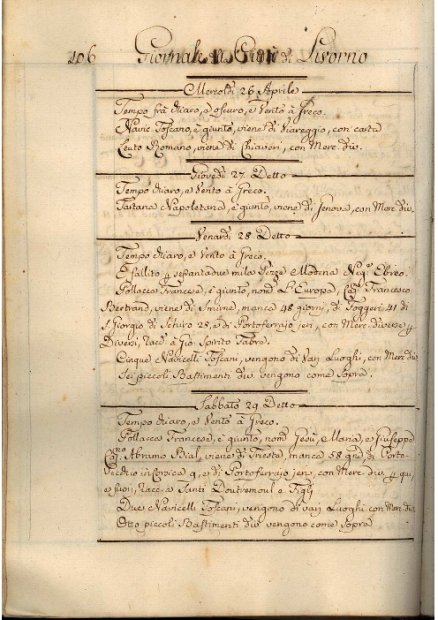 106 Giornale di Livorno
Mercoldi 26 Aprile
Tempo frà chiaro, e oscuro, e Vento à Greco.
Navic. Toscano, è giunto, viene di Viareggio, con carta
Leuto Romano, viene di Chiavari, con Merc. div.
Giovedi 27 Detto
Tempo chiaro, e Vento à Greco.
Tartana Napoletana, è giunto, viene di Genova, con Merc. div.
Venardi 28 Detto
Tempo chiaro, e Vento à Greco.
È fallito p. sessantadue mila Pezze Modena Neg. Ebreo.
Pollacca Francese, è giunto, nom. L'Europa, Cap. Francesco
Bertrand, viene di Smirne, manca 48 giorni, di
S. Giorgio di Schiro 25, e di Portoferrajo jeri, con Merc. diverse p.
Diversi, Racc. a Gio. Spirito Fabre.
Cinque Navicelli Toscani, vengono di Varj Luoghi, con Merc. div.
Sei piccoli Bastimenti div. vengono come Sopra.
Sabbato 29 Detto
Tempo chiaro, e Vento à Greco.
Pollacca Francese, è giunto, nom. Gesù, Maria, e Giuseppe
Cap. Abramo, viene di Trieste, manca 58 gni. di Porto-
Vecchio in Corsica 9, e di Portoferrajo jeri, con Merc. div. p. qui,
e fuori, Racc. a Santi Doutremoul e Figli
Due Navicelli Toscani, vengono di Varj Luoghi con Mer. div.
Otto piccoli Bastimenti div. vengono come Sopra